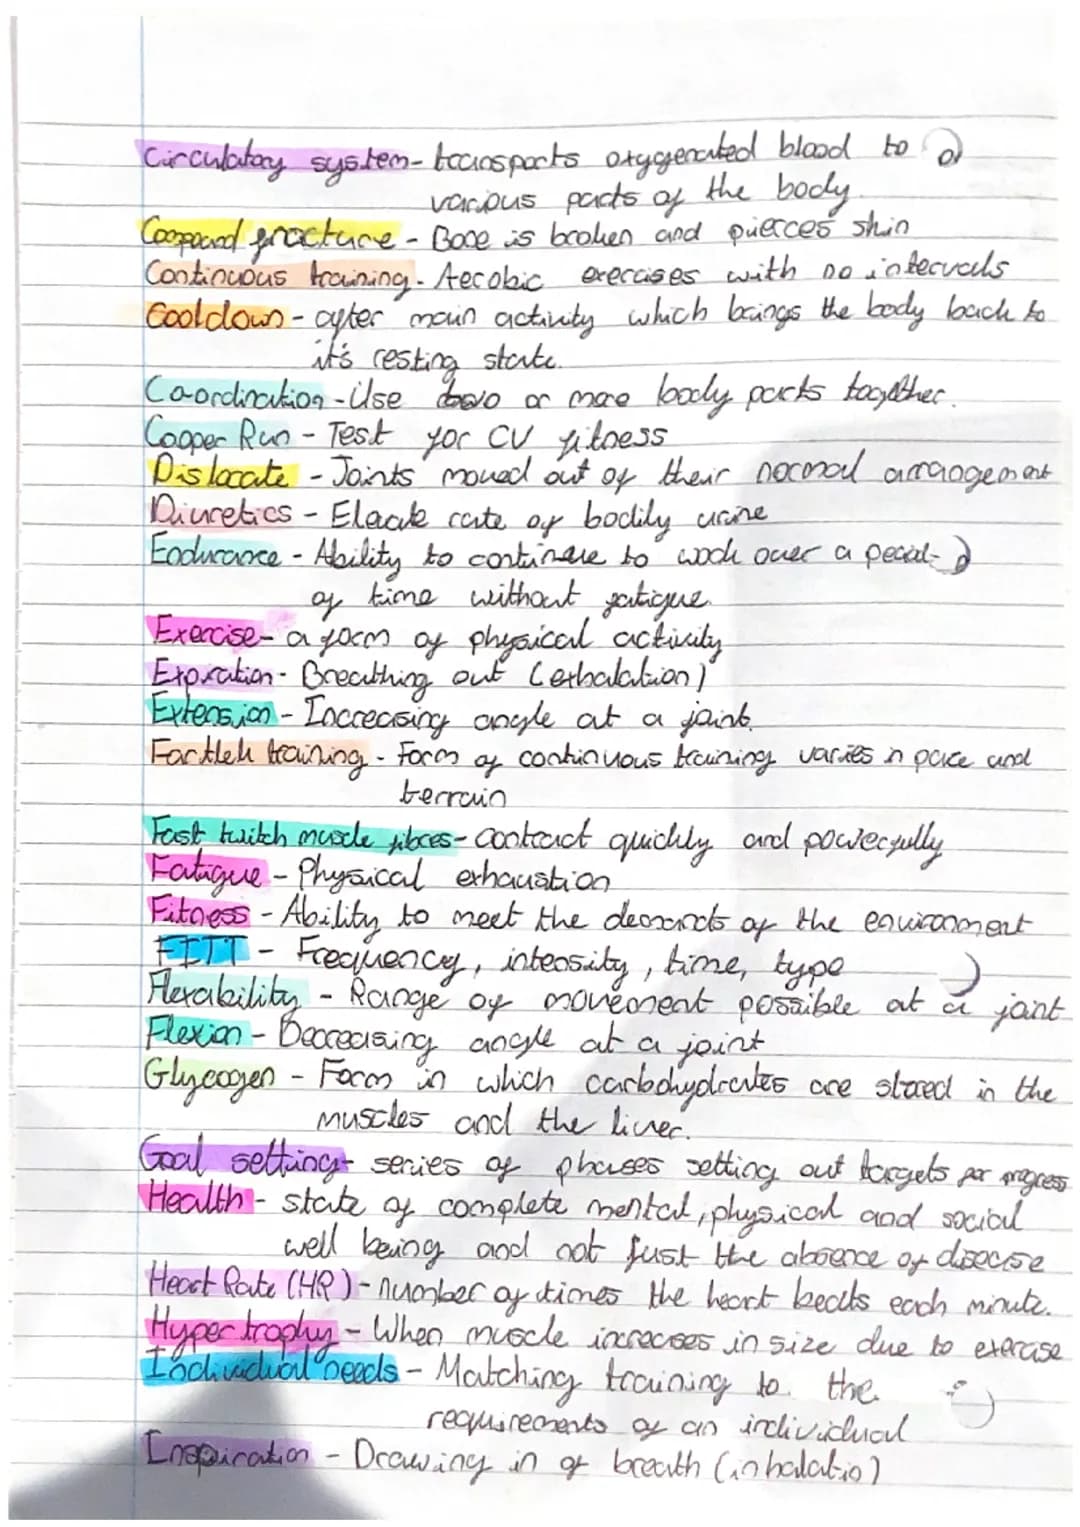 Circulatory system - transports oxygenated blood to
various parts of the body.
Compound fracture - Bone is broken and pierces skin
Continuous training - Aerobic exercises with no intervals
Cool down - after main activity which brings the body back to
it's resting state.
Co-ordination - Use two or more body parts together.
Cooper Run - Test for CV fitness
Dislocate - Joints moved out of their normal arrangement
Diuretics - rate of bodily urine
Endurance - Ability to continue to work over a period
of time without fatigue.
Exercise - a form of physical activity
Expiration - Breathing out (exhalation)
Extension - Increasing angle at a joint.
Fartlek training - Form of continuous training varies in pace and
terrain
Fast twitch muscle fibres - contract quickly and powerfully
Fatigue - Physical exhaustion
Fitness - Ability to meet the demands of the environment
FITT - Frequency, intensity, time, type
Flexability - Range of movement possible at a joint
Flexion - Decreasing angle at a joint
Glycogen - Form in which carbohydrates are stored in the
muscles and the liver.
Goal setting - series of phases setting out targets for progress
Health - state of complete mental, physical and social
well being and not just the absence of disease
Heart Rate (HR) - number of times the heart beats each minute.
Hypertrophy - When muscle increases in size due to exercise
Individual needs - Matching training to the
requirements of an individual
Inspiration - Drawing in of breath (inhalatio)